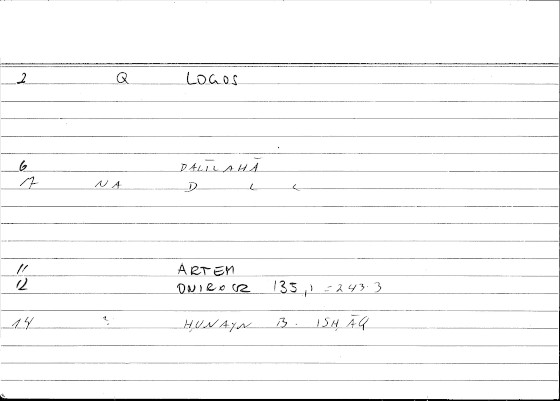 2 Q LOGOS
6 DALĪLAHĀ
17 NA D L L
11 ARTEM
12 ONIROCR 135,1 = 243.3
14 ? ḤUNAYN B. ISḤĀQ